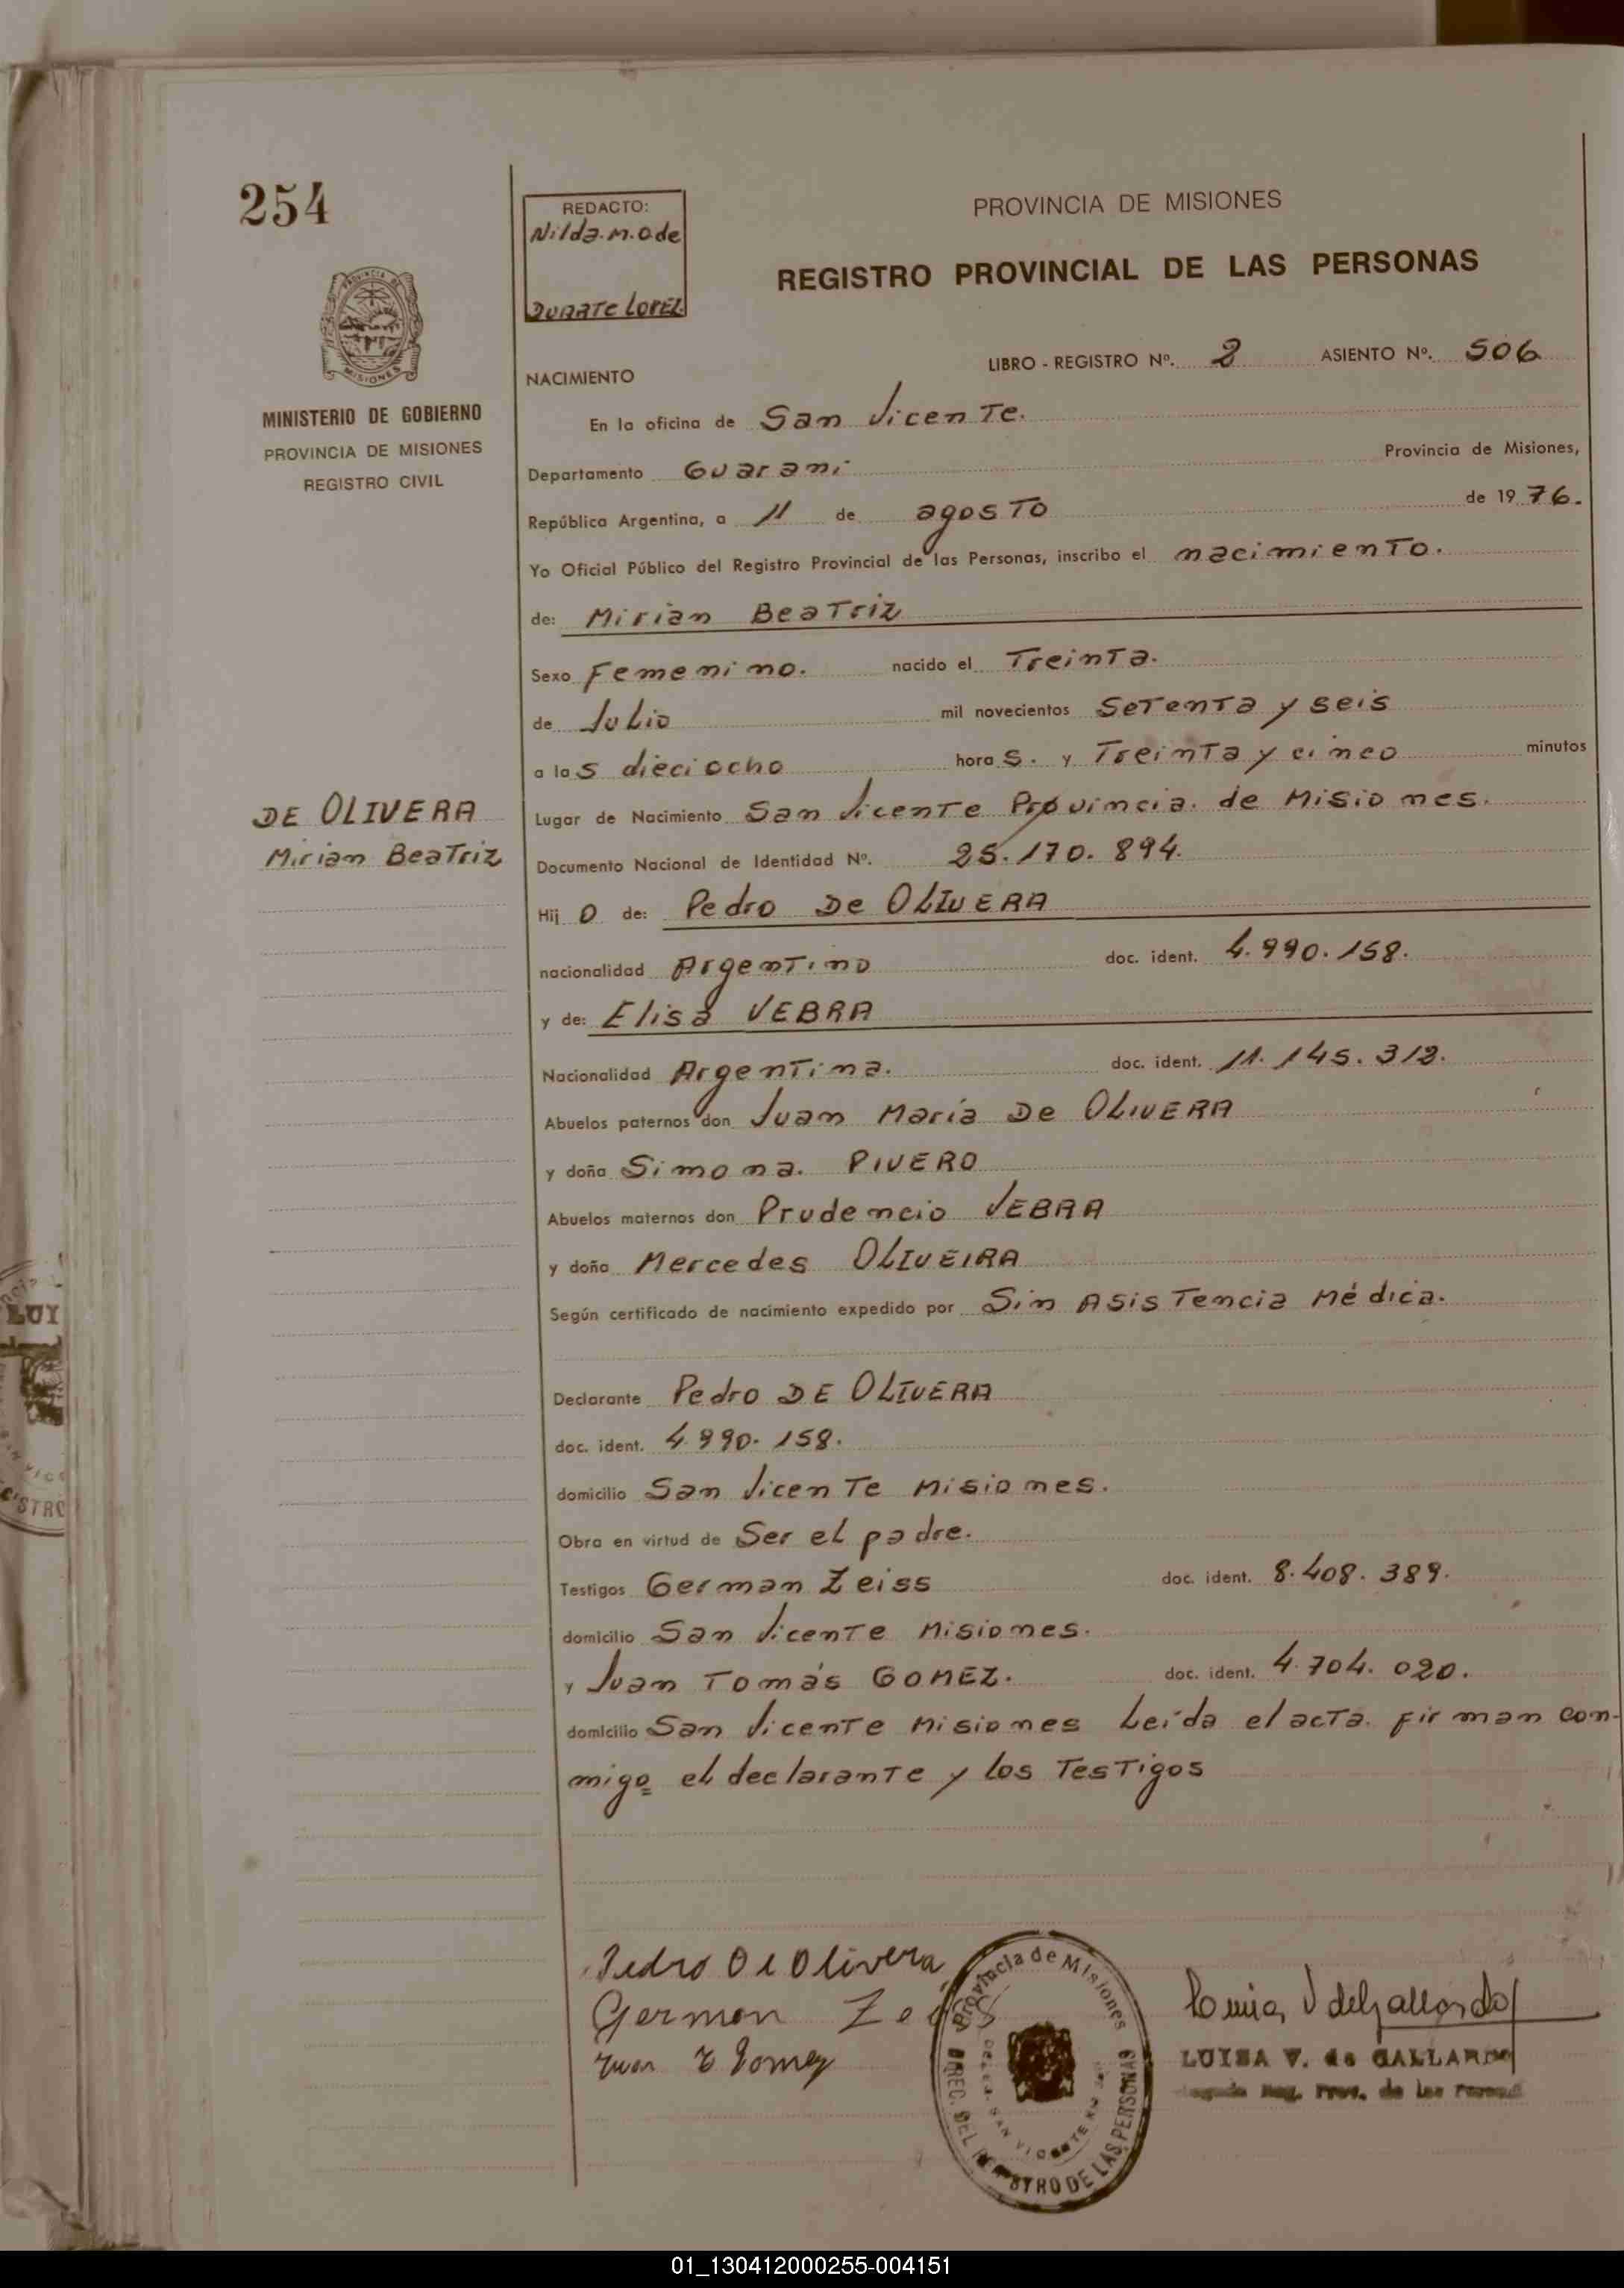 254
REDACTO:
Nilda. M. O de
DUARTE LOPEZ
PROVINCIA DE MISIONES
REGISTRO PROVINCIAL DE LAS PERSONAS
MISIONES
MINISTERIO DE GOBIERNO
PROVINCIA DE MISIONES
REGISTRO CIVIL
LIBRO - REGISTRO Nº. 2 ASIENTO Nº. 506
NACIMIENTO
En la oficina de San Vicente.
Departamento Guaraní Provincia de Misiones,
República Argentina, a 11 de agosto de 1976.
Yo Oficial Público del Registro Provincial de las Personas, inscribo el nacimiento.
de: Mirian Beatriz
Sexo Femenino. nacido el Treinta.
de Julio mil novecientos Setenta y seis
a las dieciocho horas. y Treinta y cinco minutos
DE OLIVERA
Mirian Beatriz
Lugar de Nacimiento San Vicente Provincia. de Misiones.
Documento Nacional de Identidad Nº. 25.170.894.
Hij O de: Pedro De OLIVERA
nacionalidad Argentino doc. ident. 4.990.158.
y de: Elisa VEBRA
Nacionalidad Argentina. doc. ident. 11.145.312.
Abuelos paternos don Juan María De OLIVERA
y doña Simona. PIVERO
Abuelos maternos don Prudencio VEBRA
y doña Mercedes OLIVEIRA
Según certificado de nacimiento expedido por Sin Asistencia Médica.
Declarante Pedro DE OLIVERA
doc. ident. 4.990.158.
domicilio San Vicente Misiones.
Obra en virtud de Ser el padre.
Testigos German Zeiss doc. ident. 8.408.389.
domicilio San Vicente Misiones.
y Juan Tomás GOMEZ. doc. ident. 4.704.020.
domicilio San Vicente Misiones Leída el acta. firman con-
migo el declarante y los Testigos
Pedro De Olivera
German Zeiss
Juan T Gomez
Provincia de Misiones
DIREC. DEL REGISTRO DE LAS PERSONAS
SAN VICENTE
Luisa V de Gallardo
LUISA V. de GALLARDO
Reg. Prov. de las
LUI
01_130412000255-004151